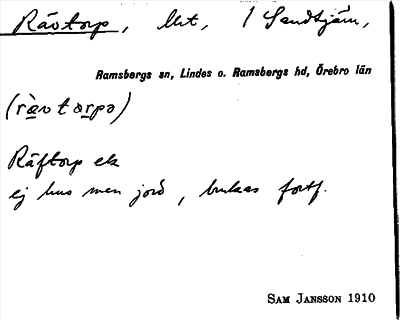 Rävtorp, lht, / Sandtjärn,
Ramsbergs sn, Lindes o. Ramsbergs hd, Örebro län
(rä̀vtårpə)
Räftorp ek
ej hus men jord, brukas fortf.
SAM JANSSON 1910